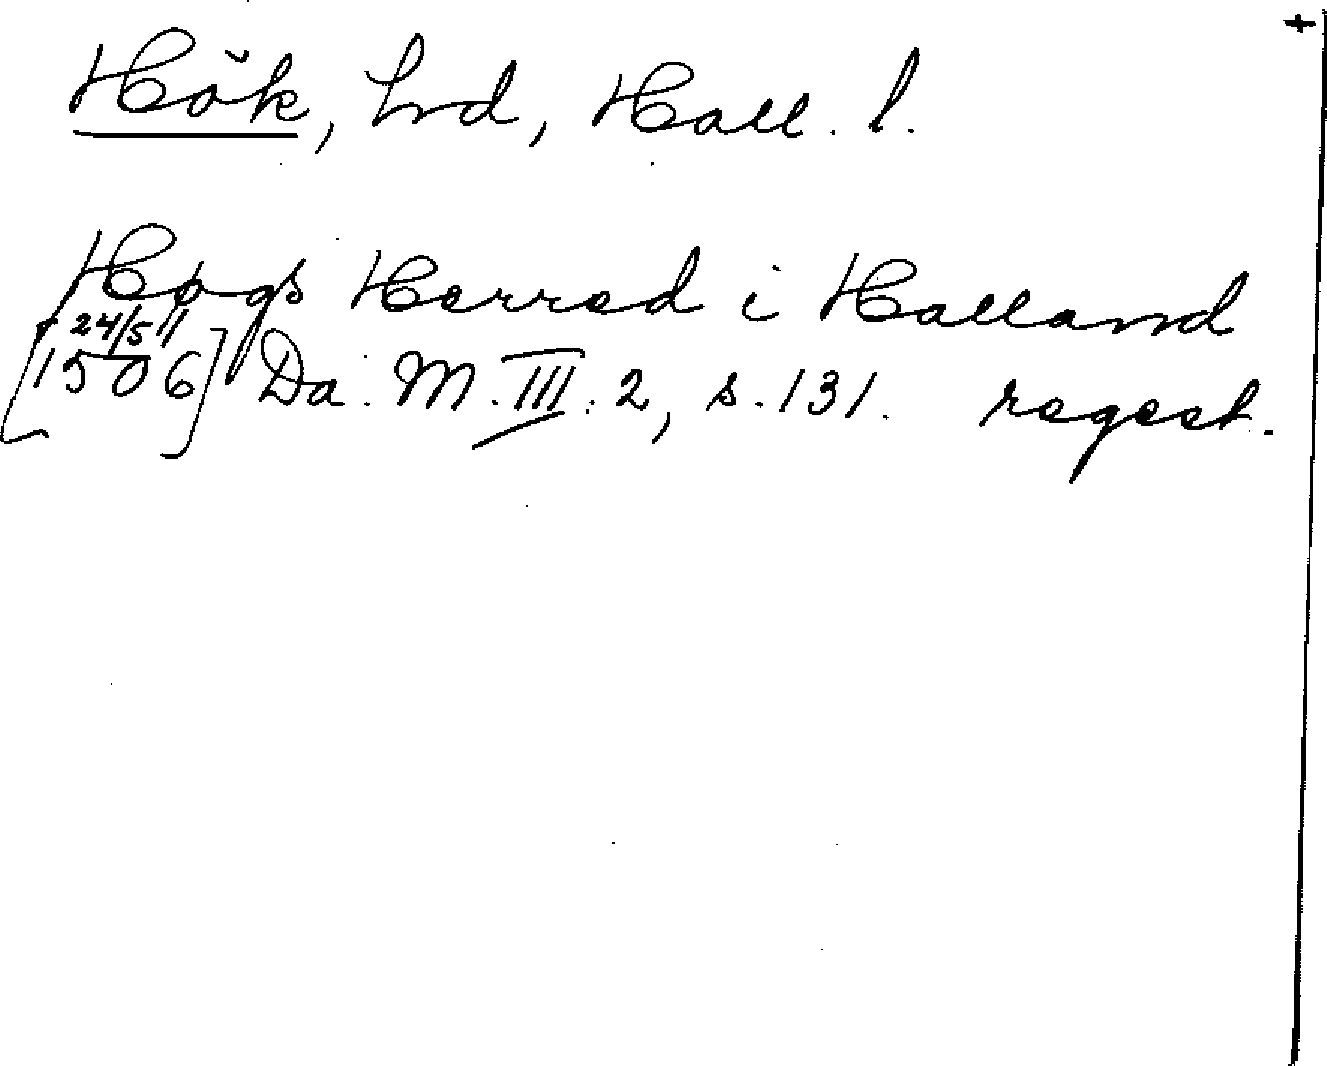 +
Hök, hrd, Hall. l.
Høgs Herred i Halland
[24/5
1506] Da. M. III. 2, s. 131. regest.